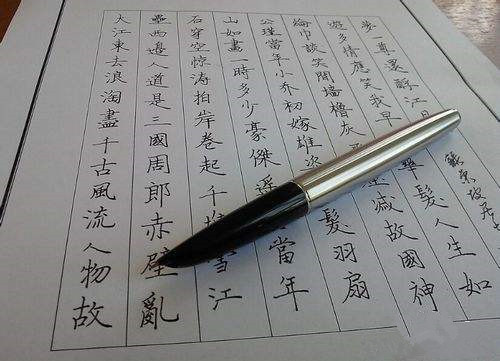 大江東去浪淘盡千古風流人物故
壘西邊人道是三國周郎赤壁亂
石穿空惊涛拍岸卷起千堆雪江
山如畫一時多少豪傑遙當年
公瑾當年小乔初嫁雄姿髮羽扇
綸巾談笑間墻櫓灰減故國神
遊多情應笑我早華髮人生如
夢一尊還酹江月
蘇東坡